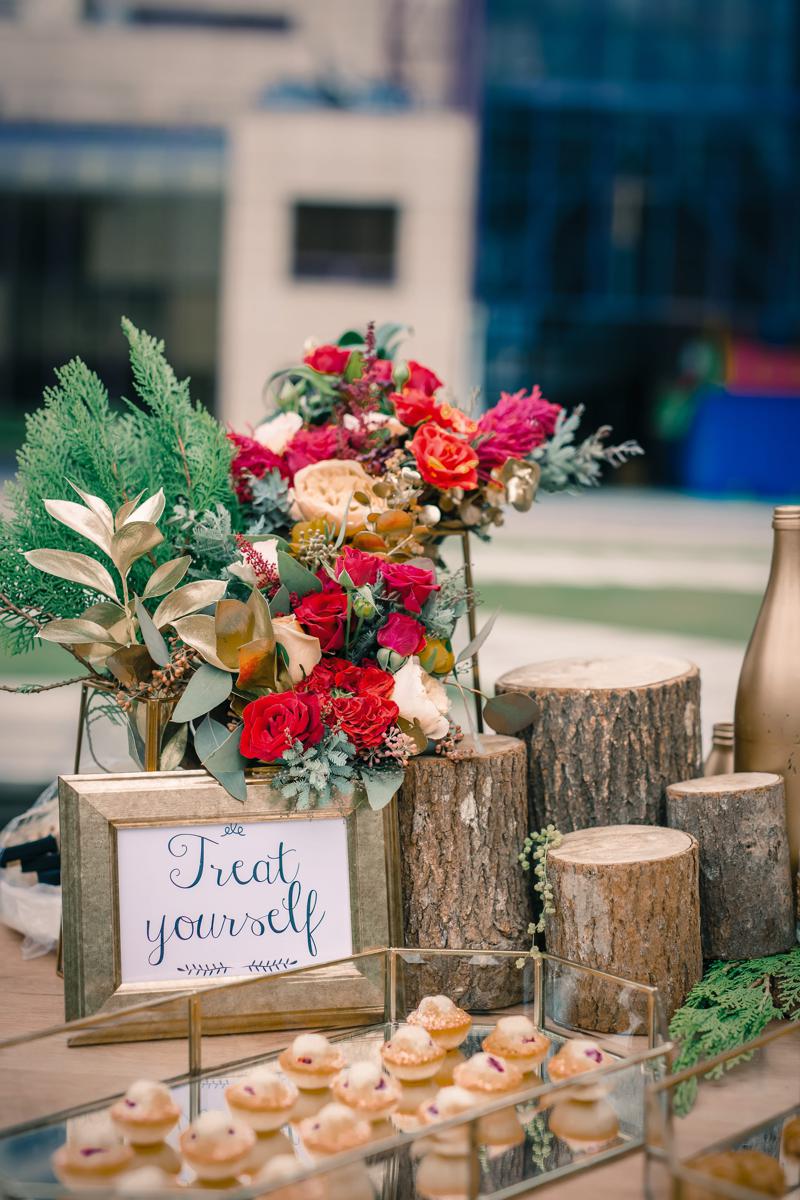 Treat
yourself